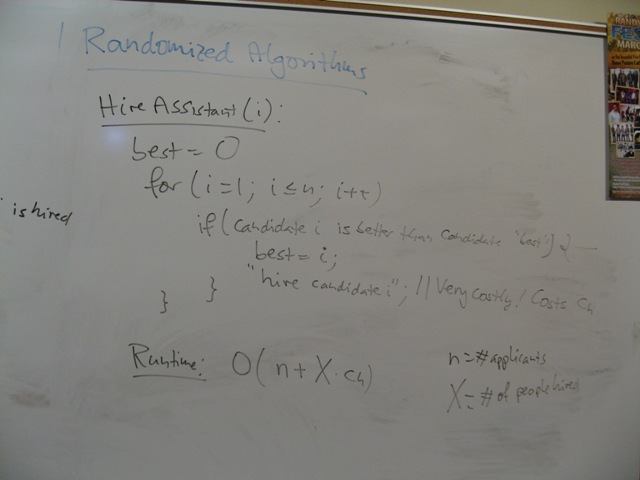 Randomized Algorithms
Hire Assistant (i):
best = 0
for (i=1; i≤n; i++)
is hired
if (candidate i is better than candidate 'best') {
best = i;
"hire candidate i"; // Very costly! Costs Ch
} }
Runtime: O(n + X · Ch)
n = # applicants
X = # of people hired
FES
MARC